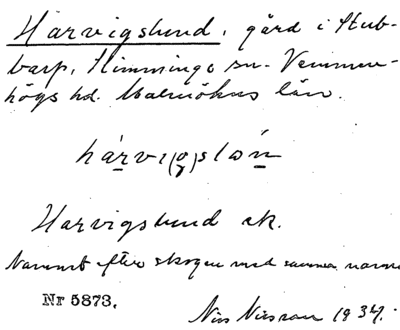 Harvigslund, gård i Stub-
barp, Slimminge sn. Vemmen-
högs hd. Malmöhus län.
hárvi(g)slón
Harvigslund ek.
Namnet efter skogen med samma namn
Nr 5873.
Nils Nilsson 1934.